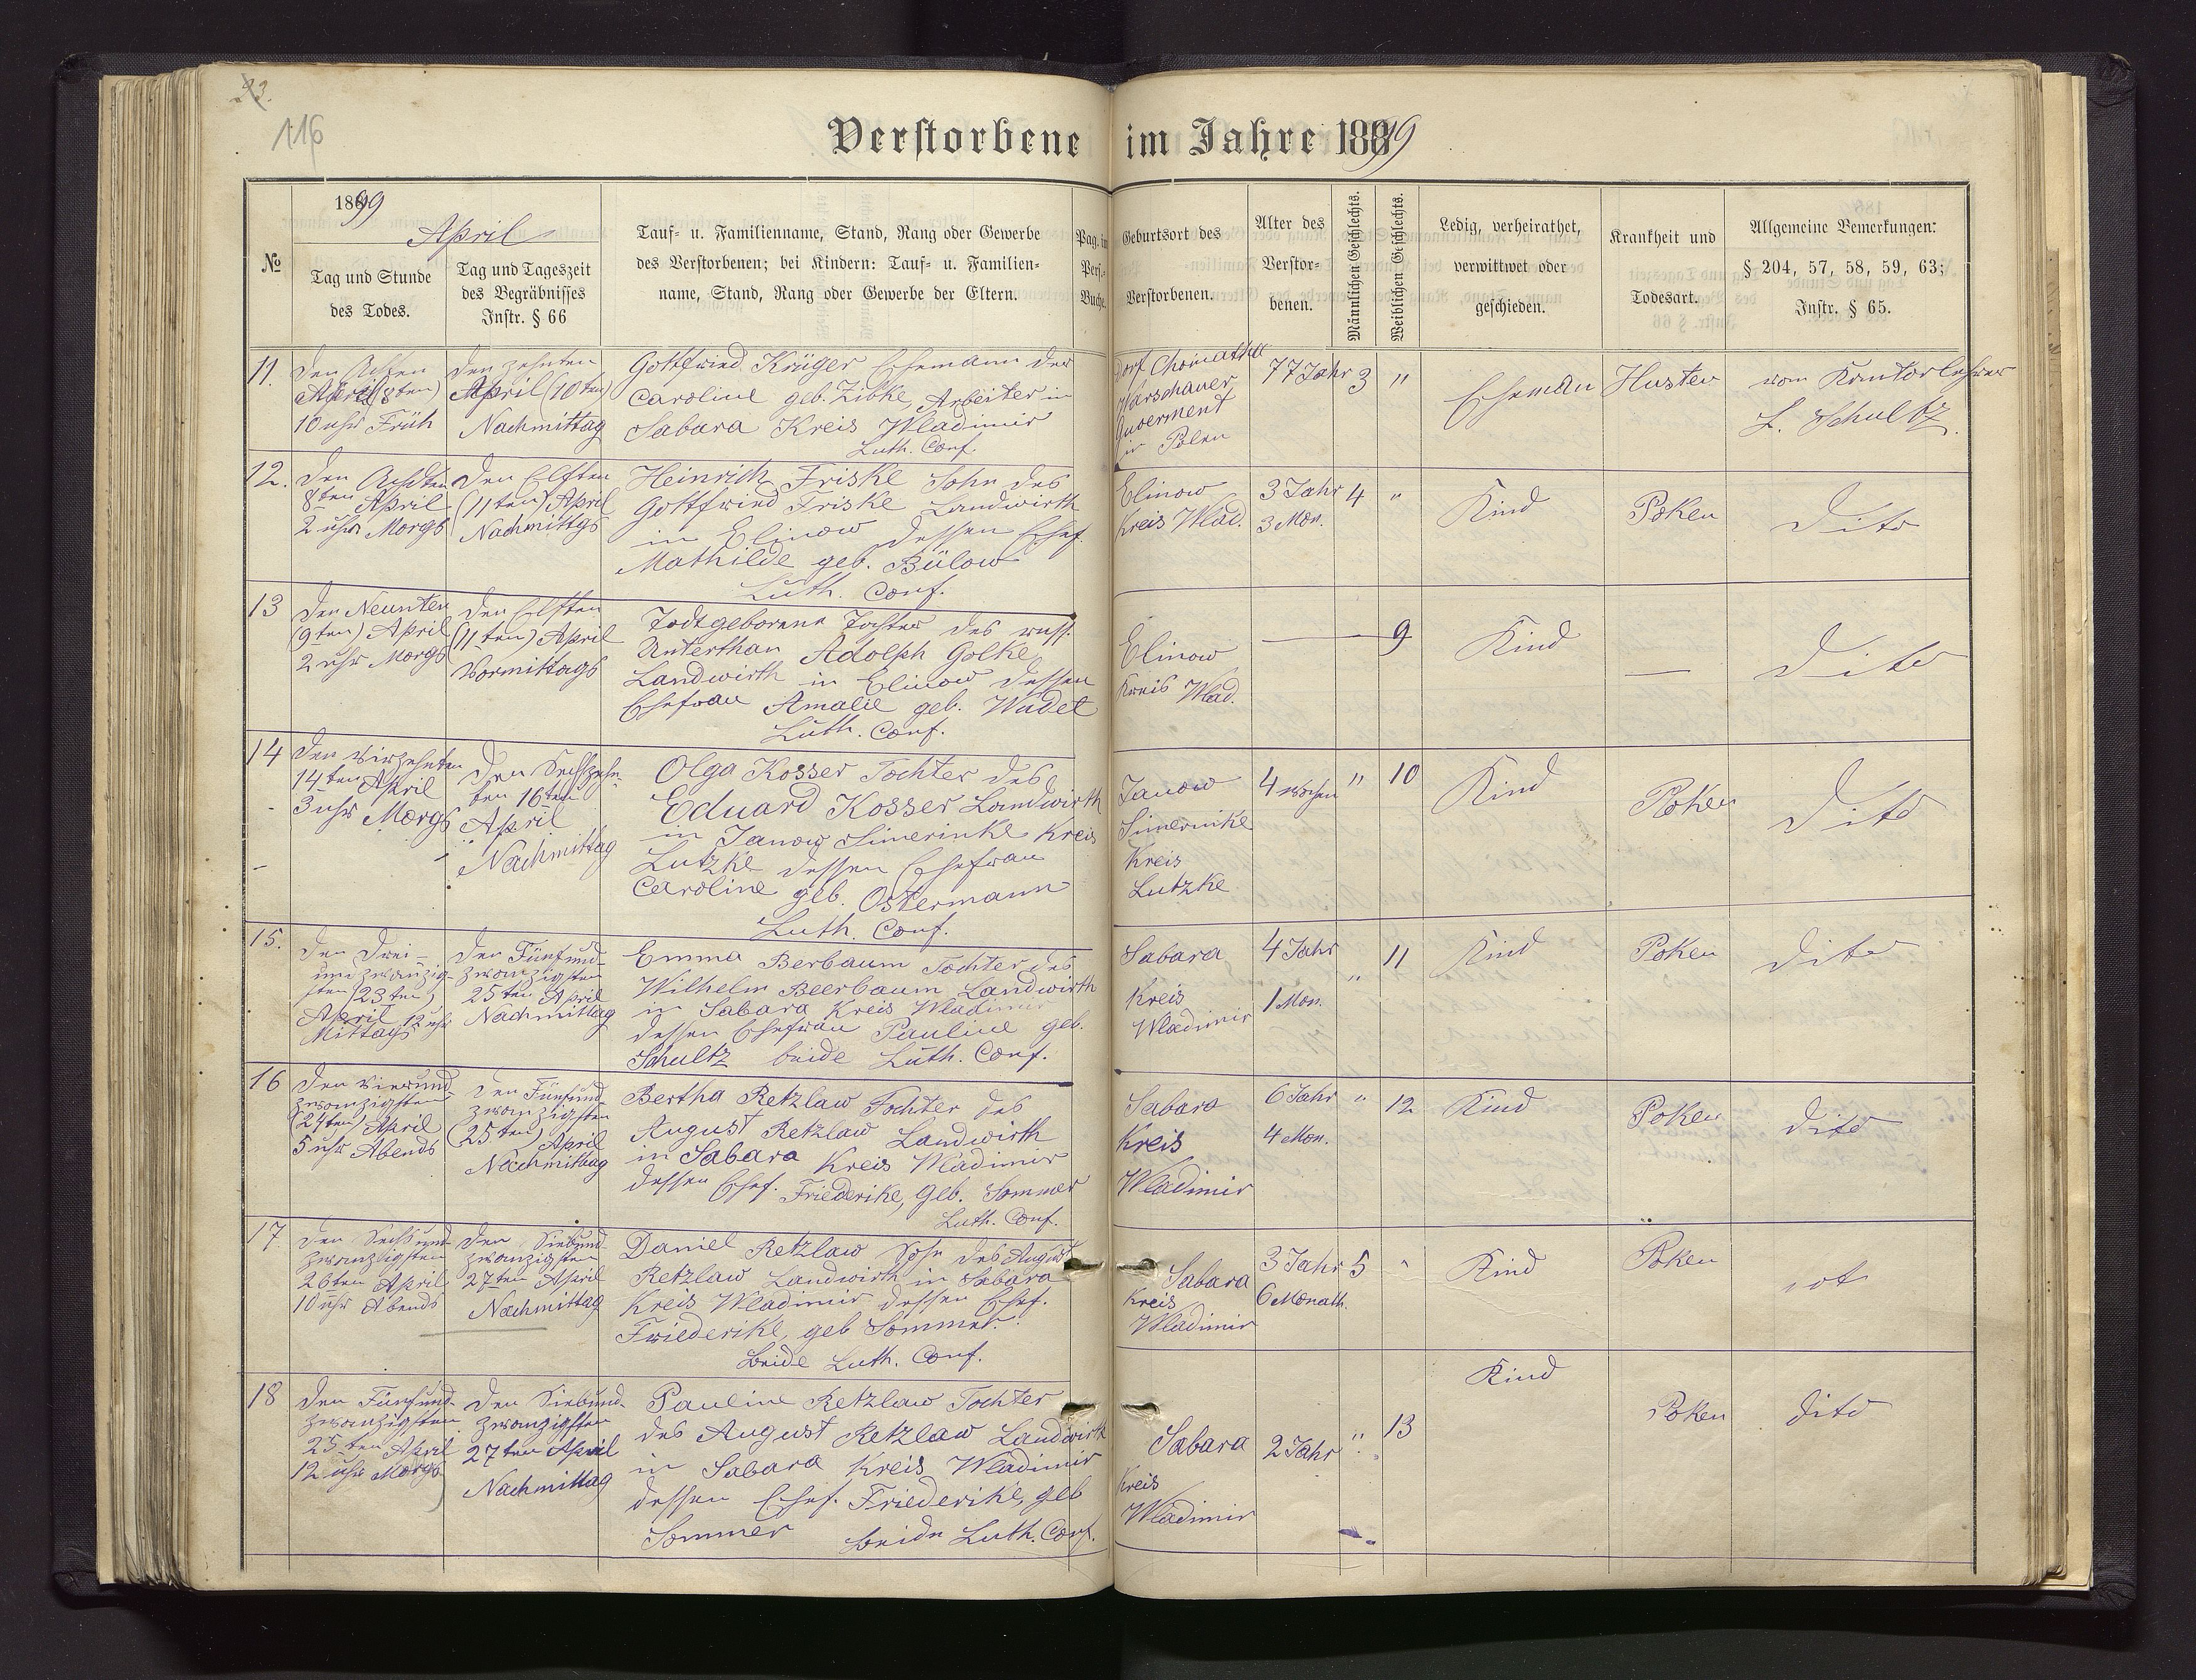 116
Verstorbene im Jahre 1899
1899
April
№
Tag und Stunde
des Todes.
Tag und Tageszeit
des Begräbnisses
Instr. § 66
Tauf- u. Familienname, Stand, Rang oder Gewerbe
des Verstorbenen; bei Kindern: Tauf- u. Familien-
name, Stand, Rang oder Gewerbe der Eltern.
Pag. im
Pers.-
Buche.
Geburtsort des
Verstorbenen.
Alter des
Verstor-
benen.
Männlichen Geschlechts.
Weiblichen Geschlechts.
Ledig, verheirathet,
verwittwet oder
geschieden.
Krankheit und
Todesart.
Allgemeine Bemerkungen:
§ 204, 57, 58, 59, 63;
Instr. § 65.
11.
den Achten
April (8ten)
10 uhr Früh
den zehnten
April (10ten)
Nachmittag
Gottfried Krüger Ehemann der
Caroline geb. Zibke, Arbeiter in
Sabara Kreis Wladimir
Luth. Conf.
Dorf
Warschauer
Guverment
in Polen
77 Jahr
3
"
Eheman
Husten
vom Kantorlehrer
L. Schultz.
12.
den Achten
8ten April
2 uhr Morgs
den Elften
(11ten) April
Nachmittgs
Heinrich Friske Sohn des
Gottfried Friske Landwirth
in Elinow dessen Ehef.
Mathilde geb. Bülow
Luth. Conf.
Elinow
Kreis Wlad.
3 Jahr
3 Mon.
4
"
Kind
Poken
dito
13
den Neunten
(9ten) April
2 uhr Morgs
den Elften
(11ten) April
Vormittags
Todtgeborene Tochter des russ.
Unterthan Adolph Golke
Landwirth in Elinow dessen
Ehefrau Amalie geb. Wudel
Luth. Conf.
Elinow
Kreis Wlad.
—
9
Kind
—
dito
14
den Virzehnten
14ten April
3 uhr Morgs
den Sechszehn-
ten 16ten
April
Nachmittag
Olga Kosser Tochter des
Eduard Kosser Landwirth
in Janow Simerinke Kreis
Lutzke dessen Ehefrau
Caroline geb. Ostermann
Luth. Conf.
Janow
Simerinke
Kreis
Lutzke
4 wochen
"
10
Kind
Poken
dito
15.
den Drei-
und zwanzig-
sten (23ten)
April 12 uhr
Mittags
den Fünfund-
zwanzigsten
25ten April
Nachmittag
Emma Berbaum Tochter des
Wilhelm Beerbaum Landwirth
in Sabara Kreis Wladimir
dessen Ehefrau Pauline geb.
Schultz beide Luth. Conf.
Sabara
Kreis
Wladimir
4 Jahr
1 Mon.
"
11
Kind
Poken
dito
16
den vierund
zwanzigsten
(24ten) April
5 uhr Abends
den Fünfund-
zwanzigsten
(25ten) April
Nachmittag
Bertha Retzlaw Tochter des
August Retzlaw Landwirth
in Sabara Kreis Wladimir
dessen Ehef. Friederike, geb. Sommer
Luth. Conf.
Sabara
Kreis
Wladimir
6 Jahr
4 Mon.
"
12
Kind
Poken
dito
17
den Sechsund-
zwanzigsten
26ten April
10 uhr Abends
den Siebund-
zwanzigsten
27ten April
Nachmittag
Daniel Retzlaw Sohn des August
Retzlaw Landwirth in Sabara
Kreis Wladimir dessen Ehef.
Friederike, geb Sommer.
beide Luth. Conf.
Sabara
Kreis
Wladimir
3 Jahr
6 Monath.
5
"
Kind
Poken
18
den Fünfund-
zwanzigsten
25ten April
12 uhr Morgs
den Siebund-
zwanzigsten
27ten April
Nachmittag
Pauline Retzlaw Tochter
des August Retzlaw Landwirth
in Sabara Kreis Wladimir
dessen Ehef. Friederike, geb
Sommer beide Luth. Conf.
Sabara
Kreis
Wladimir
2 Jahr
"
13
Kind
Poken
dito